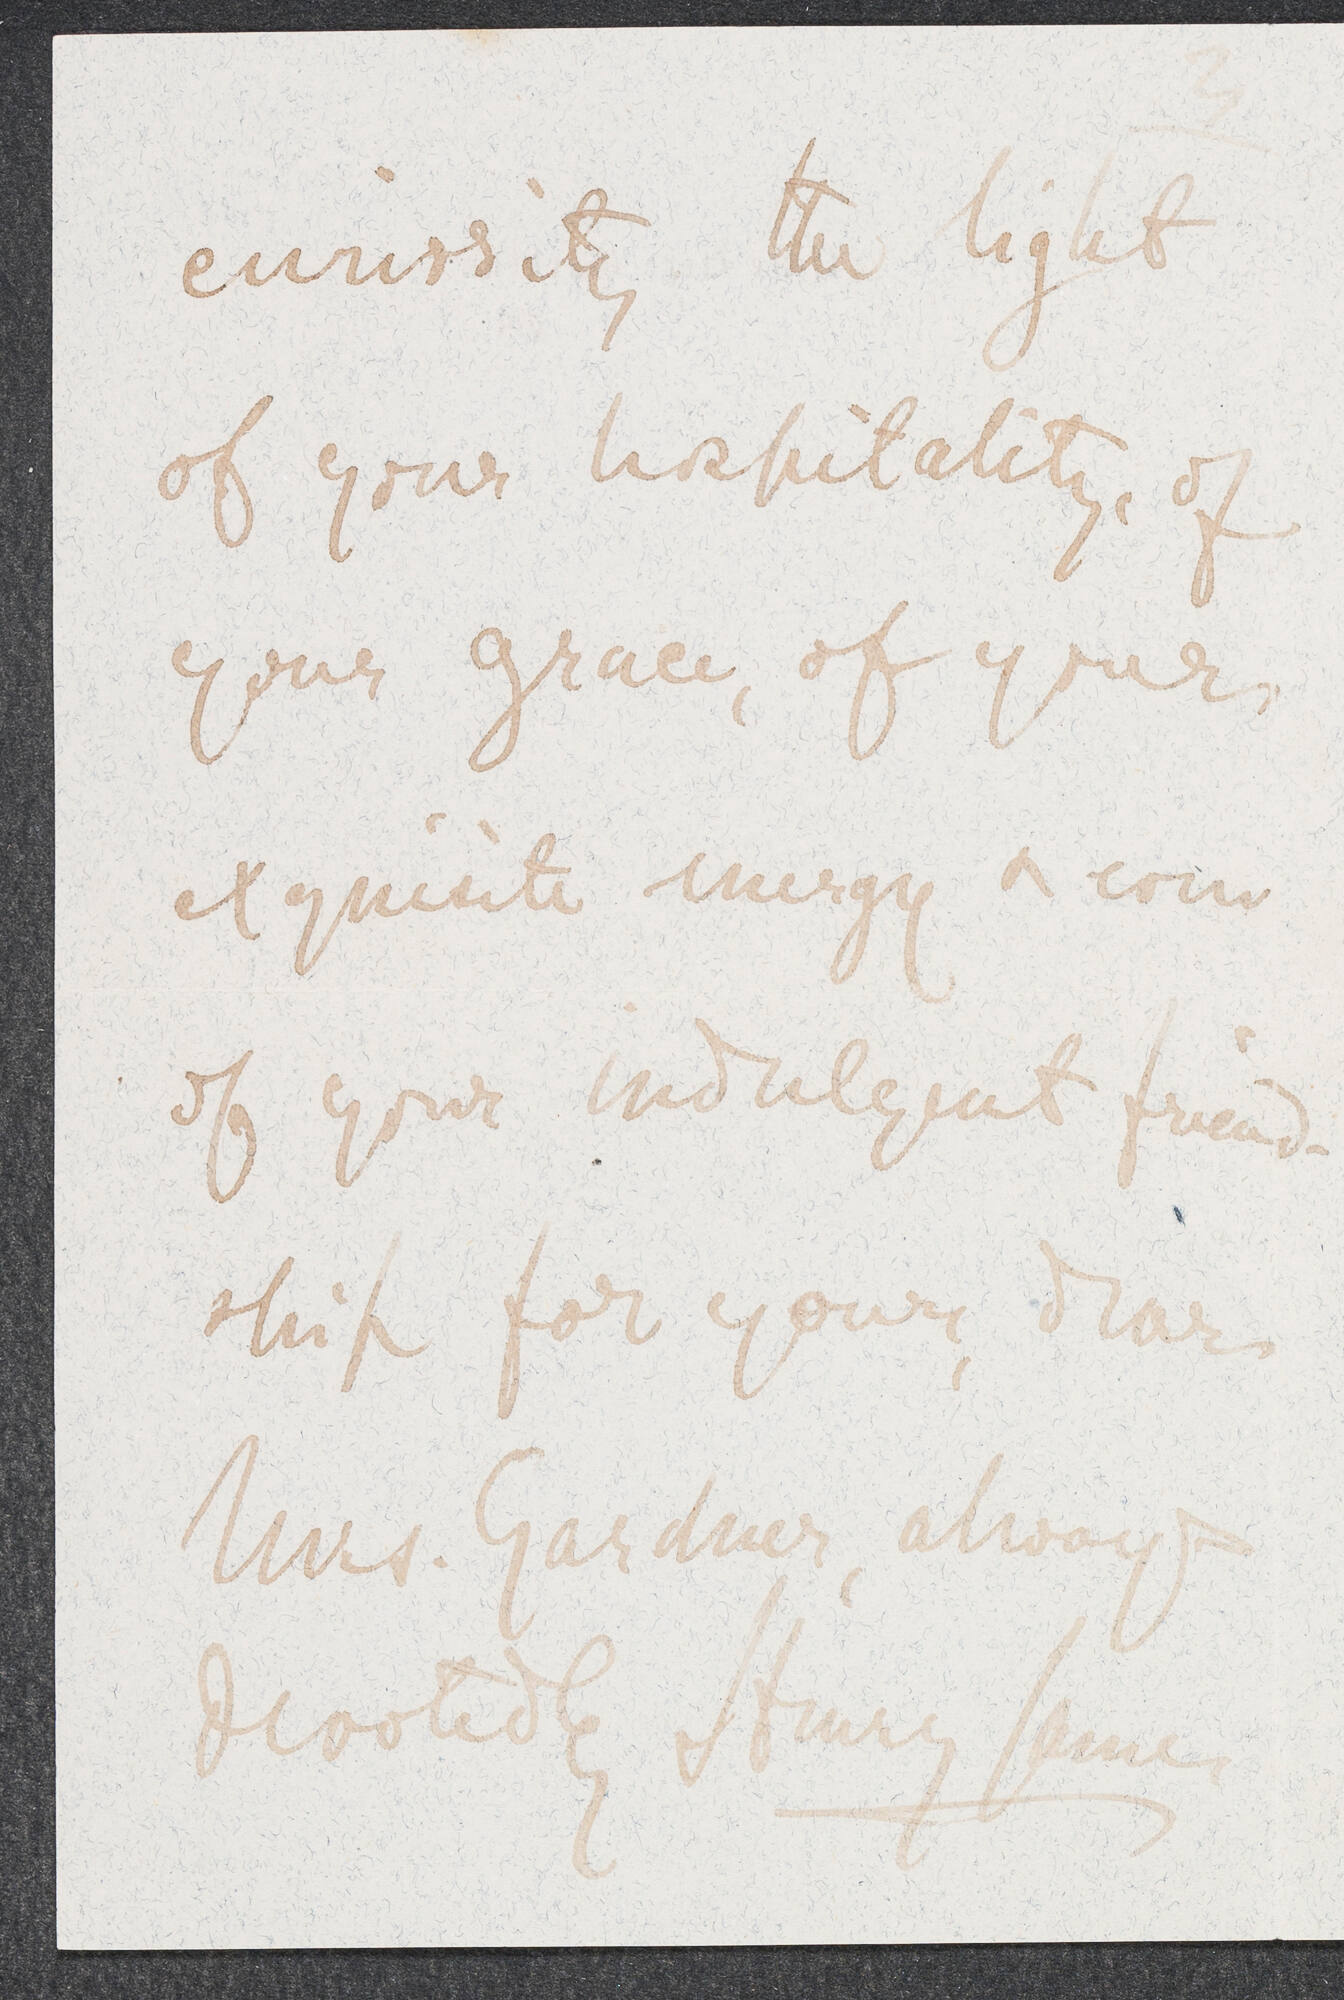 3
curiosity the light
of your hospitality, of
your grace, of your
exquisite energy & even
of your indulgent friend-
ship for yours, dear
Mrs. Gardner, always
devotedly Henry James